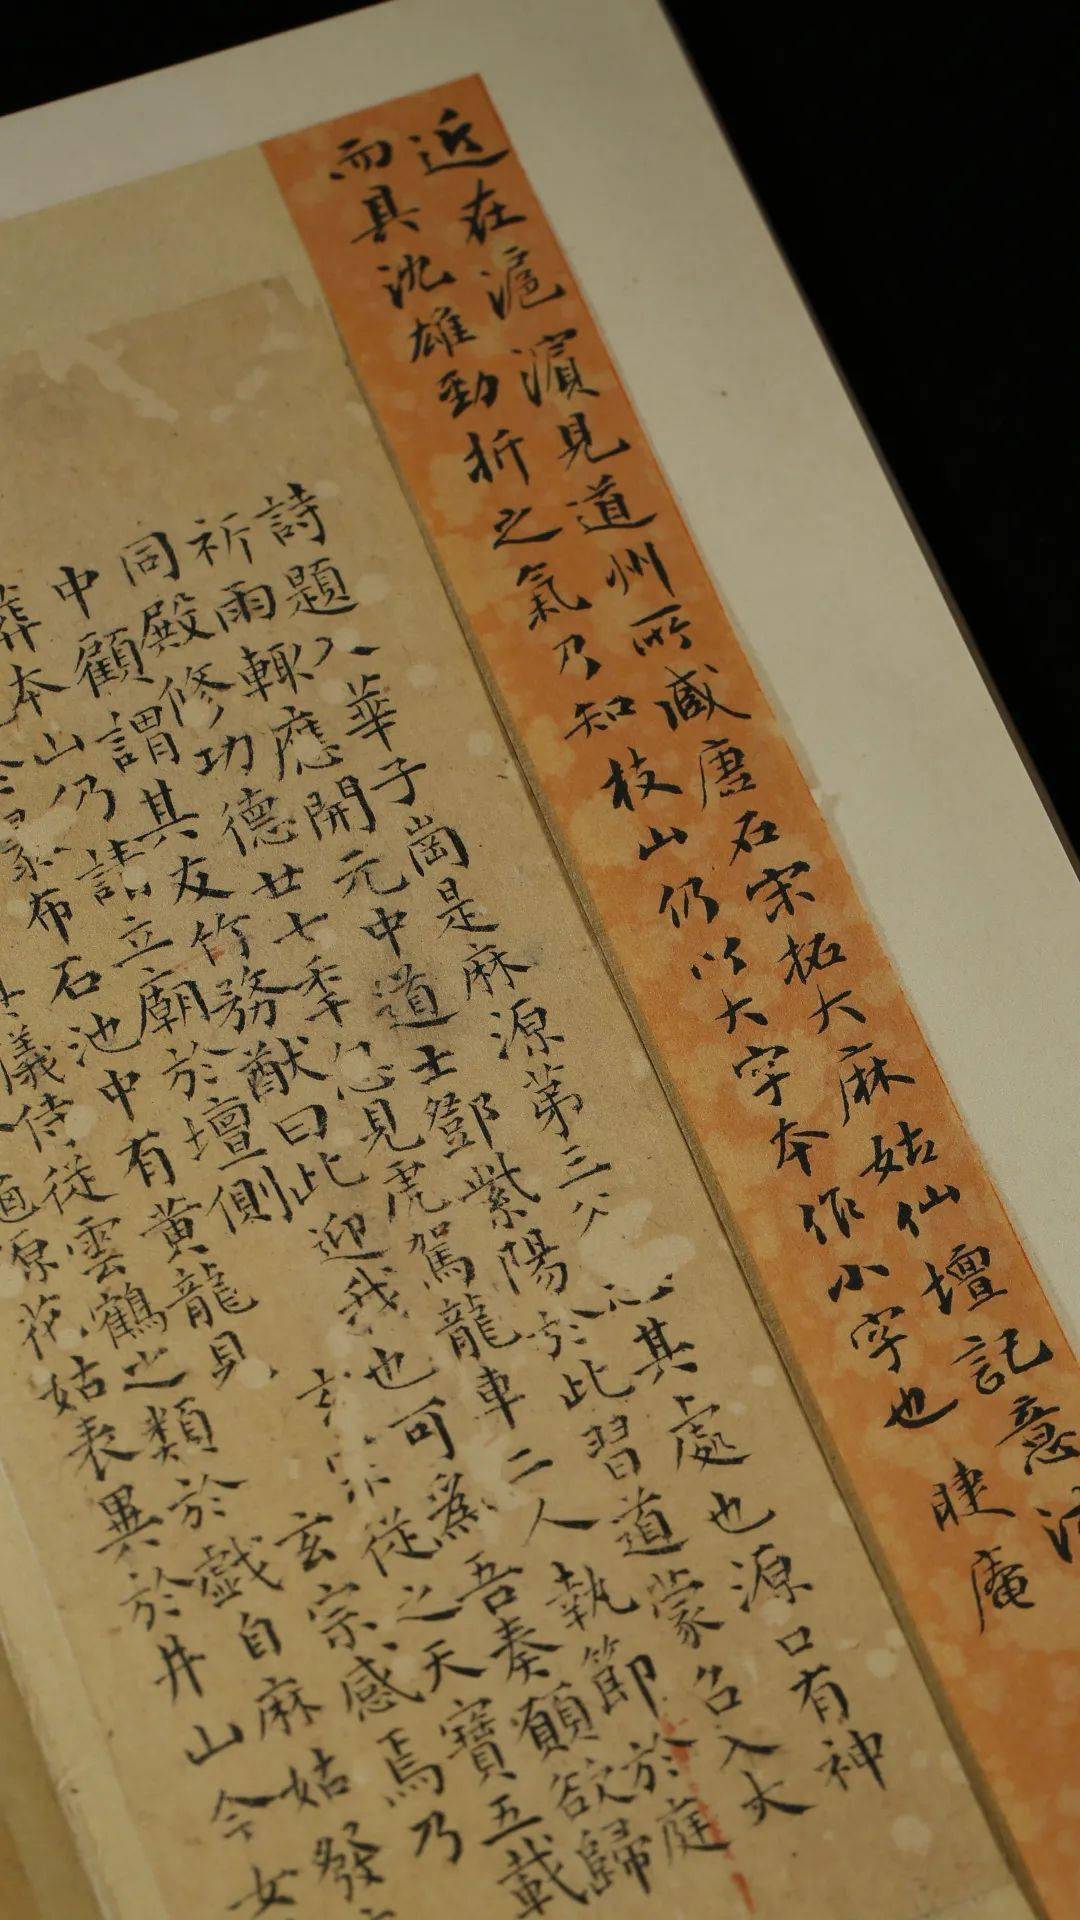 近在滬濱見道州所藏唐石宋拓大麻姑仙壇記意
而具沈雄勁折之氣乃知枝山仍以大字本作小字也 睫庵
詩題入華子崗是麻源第三谷 其處也源口有神
祈雨輒應開元中道士鄧紫陽於此習道蒙召入大
同殿修功德廿七年忽見虎駕龍車二人執節於庭
中顧謂其友竹務猷曰此迎我也可為吾奏願欲歸
葬本山仍請立廟於壇側 玄宗從之天寶五載
布石池中有黃龍見 玄宗感焉乃
儀侍從雲鶴之類於戲自麻姑發
源花姑表異於井山今女